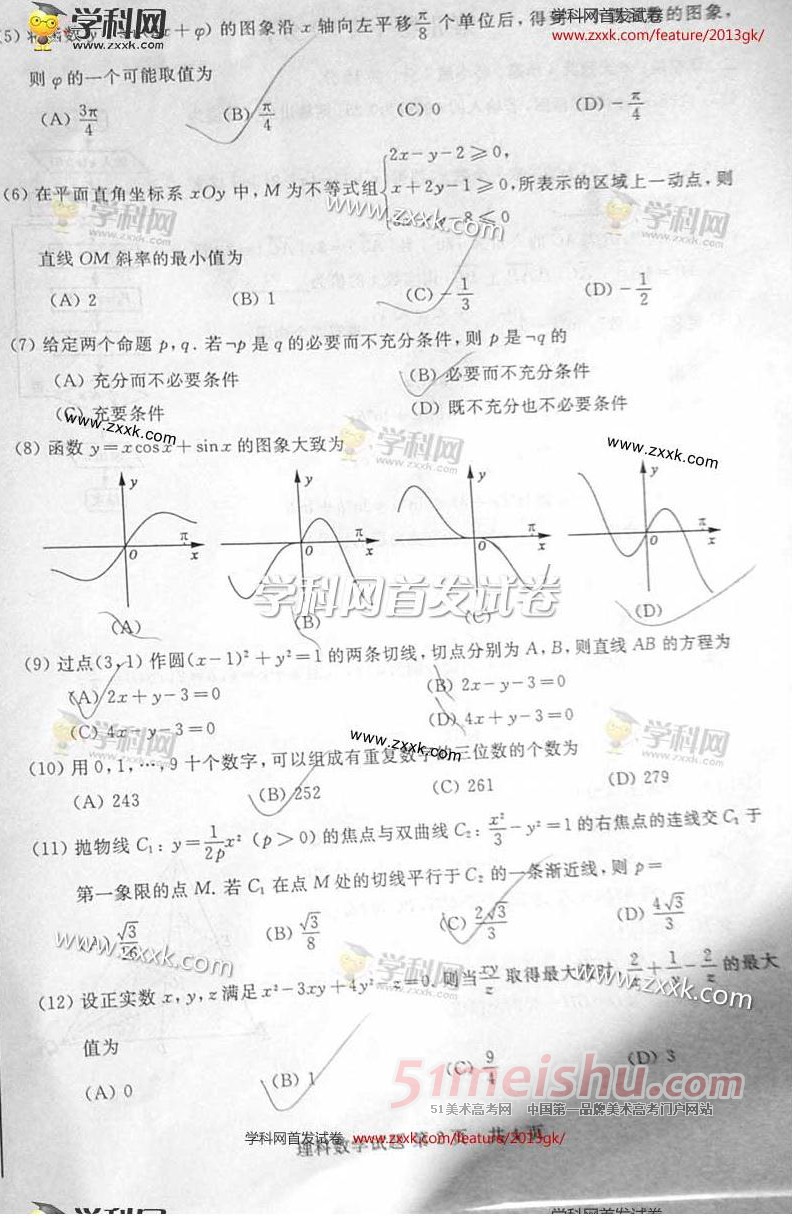 学科网 zxxk.com
学科网首发试卷
www.zxxk.com/feature/2013gk/
(5) 将函数 y x+φ) 的图象沿 x 轴向左平移 π/8 个单位后, 得到一个 的图象,
则 φ 的一个可能取值为
(A) 3π/4 (B) π/4 (C) 0 (D) -π/4
(6) 在平面直角坐标系 xOy 中, M 为不等式组 { 2x-y-2≥0, x+2y-1≥0, -8≤0 所表示的区域上一动点, 则
学科网 zxxk.com
www.zxxk.com
学科网
直线 OM 斜率的最小值为
(A) 2 (B) 1 (C) -1/3 (D) -1/2
(7) 给定两个命题 p, q. 若 ¬p 是 q 的必要而不充分条件, 则 p 是 ¬q 的
(A) 充分而不必要条件 (B) 必要而不充分条件
(C) 充要条件 (D) 既不充分也不必要条件
www.zxxk.com
学科网 zxxk.com
www.zxxk.com
(8) 函数 y=xcosx+sinx 的图象大致为
y y y y
O π x O π x O π x O π x
(A) (B) (C) (D)
学科网首发试卷
(9) 过点(3,1) 作圆(x-1)²+y²=1 的两条切线, 切点分别为 A, B, 则直线 AB 的方程为
(A) 2x+y-3=0 (B) 2x-y-3=0
(C) 4x-y-3=0 (D) 4x+y-3=0
学科网
www.zxxk.com
学科网
(10) 用 0, 1, …, 9 十个数字, 可以组成有重复数字的三位数的个数为
(A) 243 (B) 252 (C) 261 (D) 279
(11) 抛物线 C₁: y=1/2p x² (p>0) 的焦点与双曲线 C₂: x²/3-y²=1 的右焦点的连线交 C₁ 于
第一象限的点 M. 若 C₁ 在点 M 处的切线平行于 C₂ 的一条渐近线, 则 p=
(A) √3/16 (B) √3/8 (C) 2√3/3 (D) 4√3/3
www.zxxk.com
学科网 zxxk.com
www.zxxk.com
(12) 设正实数 x, y, z 满足 x²-3xy+4y²-z=0. 则当 xy/z 取得最大值时, 2/x+1/y-2/z 的最大
值为
(A) 0 (B) 1 (C) 9/4 (D) 3
51meishu.com
51美术高考网 中国第一品牌美术高考门户网站
学科网首发试卷 www.zxxk.com/feature/2013gk/
理科数学试题 第 2 页 共 4 页